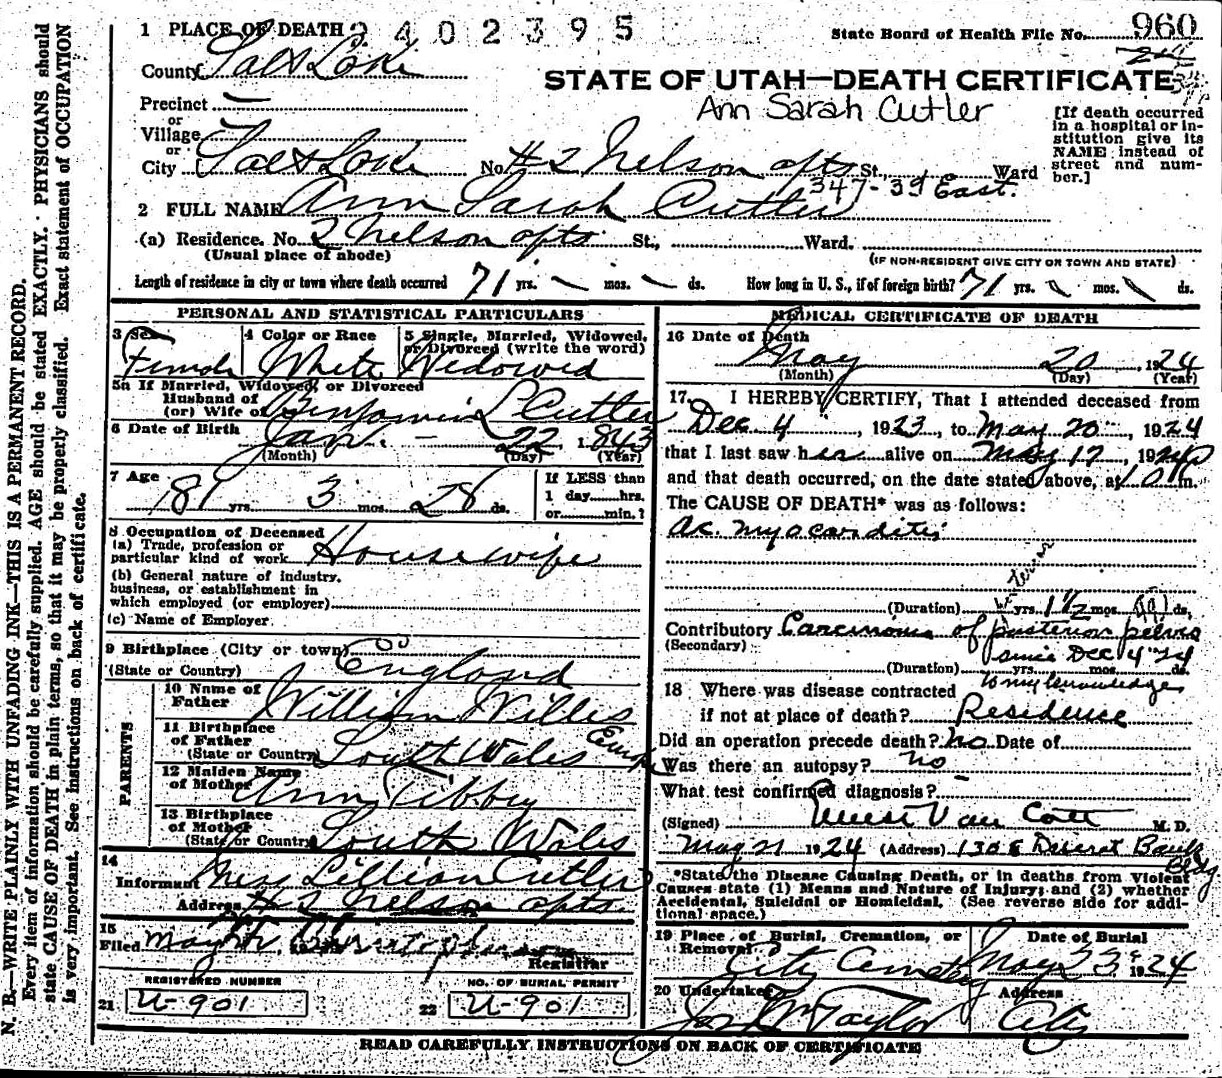 1 PLACE OF DEATH 2402395
State Board of Health File No. 960
County Salt Lake
STATE OF UTAH—DEATH CERTIFICATE
Ann Sarah Cutler
Precinct —
or
Village —
or
City Salt Lake No. #2 Nelson apts St., Ward
347-3d East.
[If death occurred
in a hospital or in-
stitution give its
NAME instead of
street and num-
ber.]
2 FULL NAME Ann Sarah Cutler
(a) Residence. No. 2 Nelson apts St., Ward.
(Usual place of abode)
(IF NON-RESIDENT GIVE CITY OR TOWN AND STATE)
Length of residence in city or town where death occurred 71 yrs. — mos. — ds. How long in U. S., if of foreign birth? 71 yrs. mos. ds.
PERSONAL AND STATISTICAL PARTICULARS
3 Sex
Female
4 Color or Race
White
5 Single, Married, Widowed,
or Divorced (write the word)
Widowed
5a If Married, Widowed, or Divorced
Husband of
(or) Wife of Benjamin L Cutler
6 Date of Birth Jan. — 22, 1843
(Month) (Day) (Year)
7 Age
81 yrs. 3 mos. 28 ds.
If LESS than
1 day......hrs.
or......min.?
8 Occupation of Deceased
(a) Trade, profession or
particular kind of work Housewife
(b) General nature of industry,
business, or establishment in
which employed (or employer)
(c) Name of Employer
9 Birthplace (City or town)
(State or Country) England
PARENTS
10 Name of
Father William Willes
11 Birthplace
of Father
(State or Country) South Wales
12 Maiden Name
of Mother Ann Tibby
13 Birthplace
of Mother
(State or Country) South Wales
14
Informant Miss Lillian Cutler
Address #2 Nelson apts.
15
Filed May
Registrar
REGISTERED NUMBER
21 U-901
NO. OF BURIAL PERMIT
22 U-901
MEDICAL CERTIFICATE OF DEATH
16 Date of Death
May 20, 1924
(Month) (Day) (Year)
17. I HEREBY CERTIFY, That I attended deceased from
Dec 4, 1923, to May 20, 1924
that I last saw her alive on May 17, 1924
and that death occurred, on the date stated above, at m.
The CAUSE OF DEATH* was as follows:
Ac. myocarditis
(Duration) yrs. 1 1/2 mos. ds.
Contributory Carcinoma of posterior pelvis
(Secondary) since Dec 4
(Duration) yrs. mos. ds.
to my knowledge
18 Where was disease contracted
if not at place of death? Residence
Did an operation precede death? No Date of
Was there an autopsy? no
What test confirmed diagnosis? —
(Signed) Van Cott M. D.
May 21 1924 (Address) 1305 Deseret Bank Bldg.
*State the Disease Causing Death, or in deaths from Violent
Causes state (1) Means and Nature of Injury; and (2) whether
Accidental, Suicidal or Homicidal. (See reverse side for addi-
tional space.)
19 Place of Burial, Cremation, or
Removal
City Cemetery
Date of Burial
May 23, 1924
20 Undertaker
Jos Wm Taylor
Address
City
READ CAREFULLY INSTRUCTIONS ON BACK OF CERTIFICATE
N. B.—WRITE PLAINLY WITH UNFADING INK—THIS IS A PERMANENT RECORD.
Every item of information should be carefully supplied. AGE should be stated EXACTLY. PHYSICIANS should
state CAUSE OF DEATH in plain terms, so that it may be properly classified. Exact statement of OCCUPATION
is very important. See instructions on back of certificate.